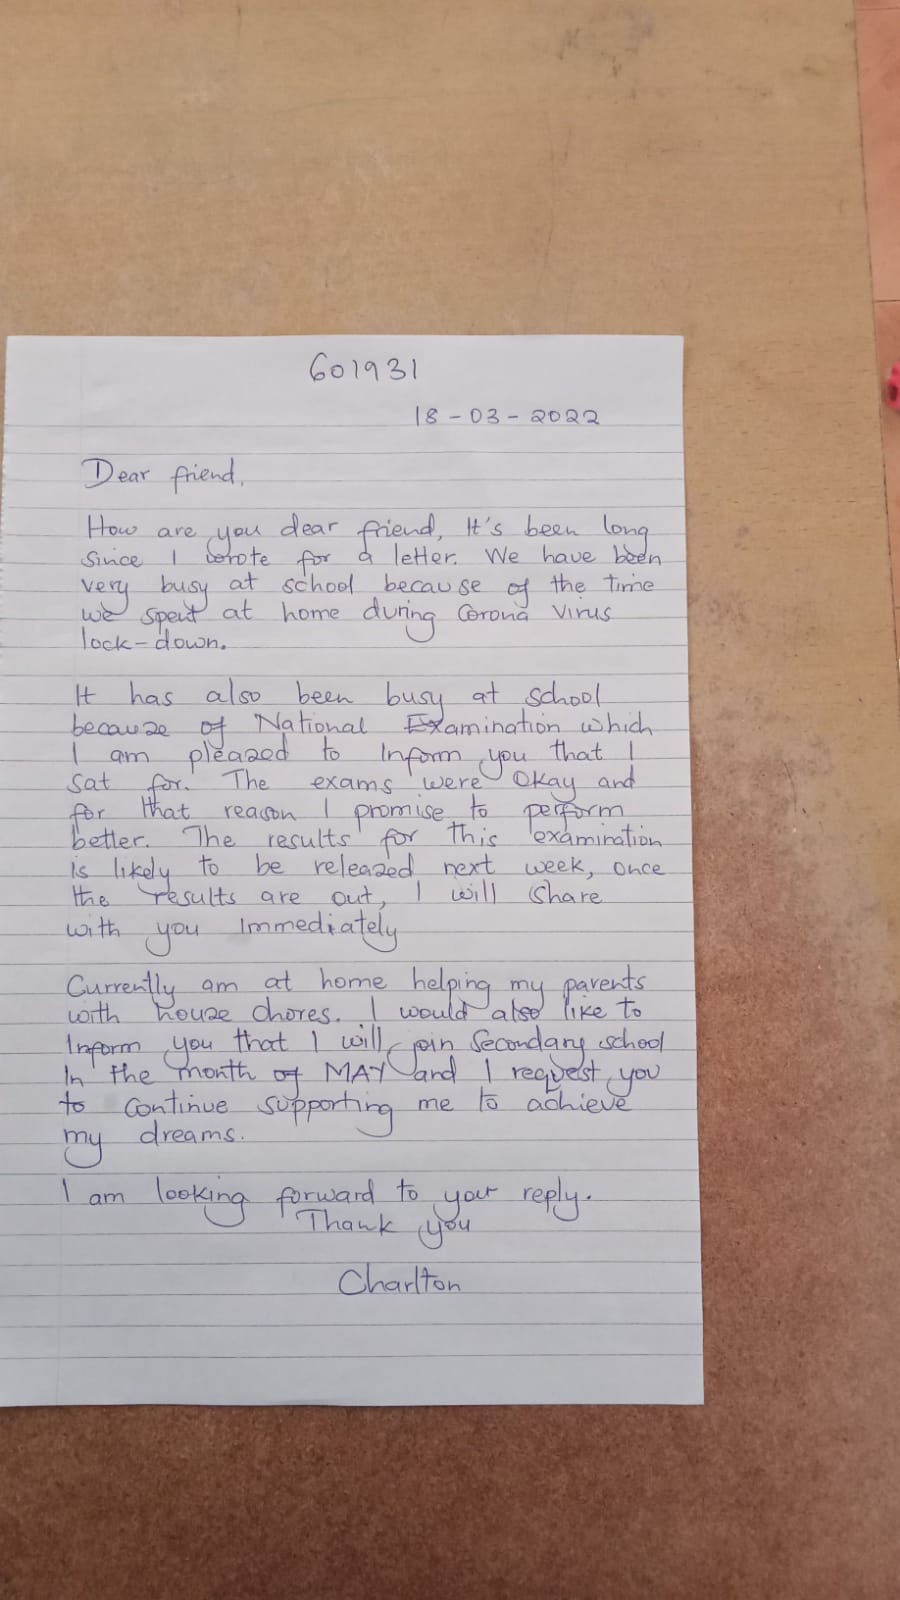 601931
18-03-2022
Dear friend,
How are you dear friend, It's been long
since I wrote for a letter. We have been
very busy at school because of the time
we spent at home during Corona Virus
lock-down.
It has also been busy at school
because of National Examination which
I am pleased to Inform you that I
sat for. The exams were Okay and
for that reason I promise to perform
better. The results for this examination
is likely to be released next week, once
the results are out, I will share
with you Immediately
Currently am at home helping my parents
with house chores. I would also like to
Inform you that I will join Secondary school
In the month of MAY and I request you
to continue supporting me to achieve
my dreams.
I am looking forward to your reply.
Thank you
Charlton